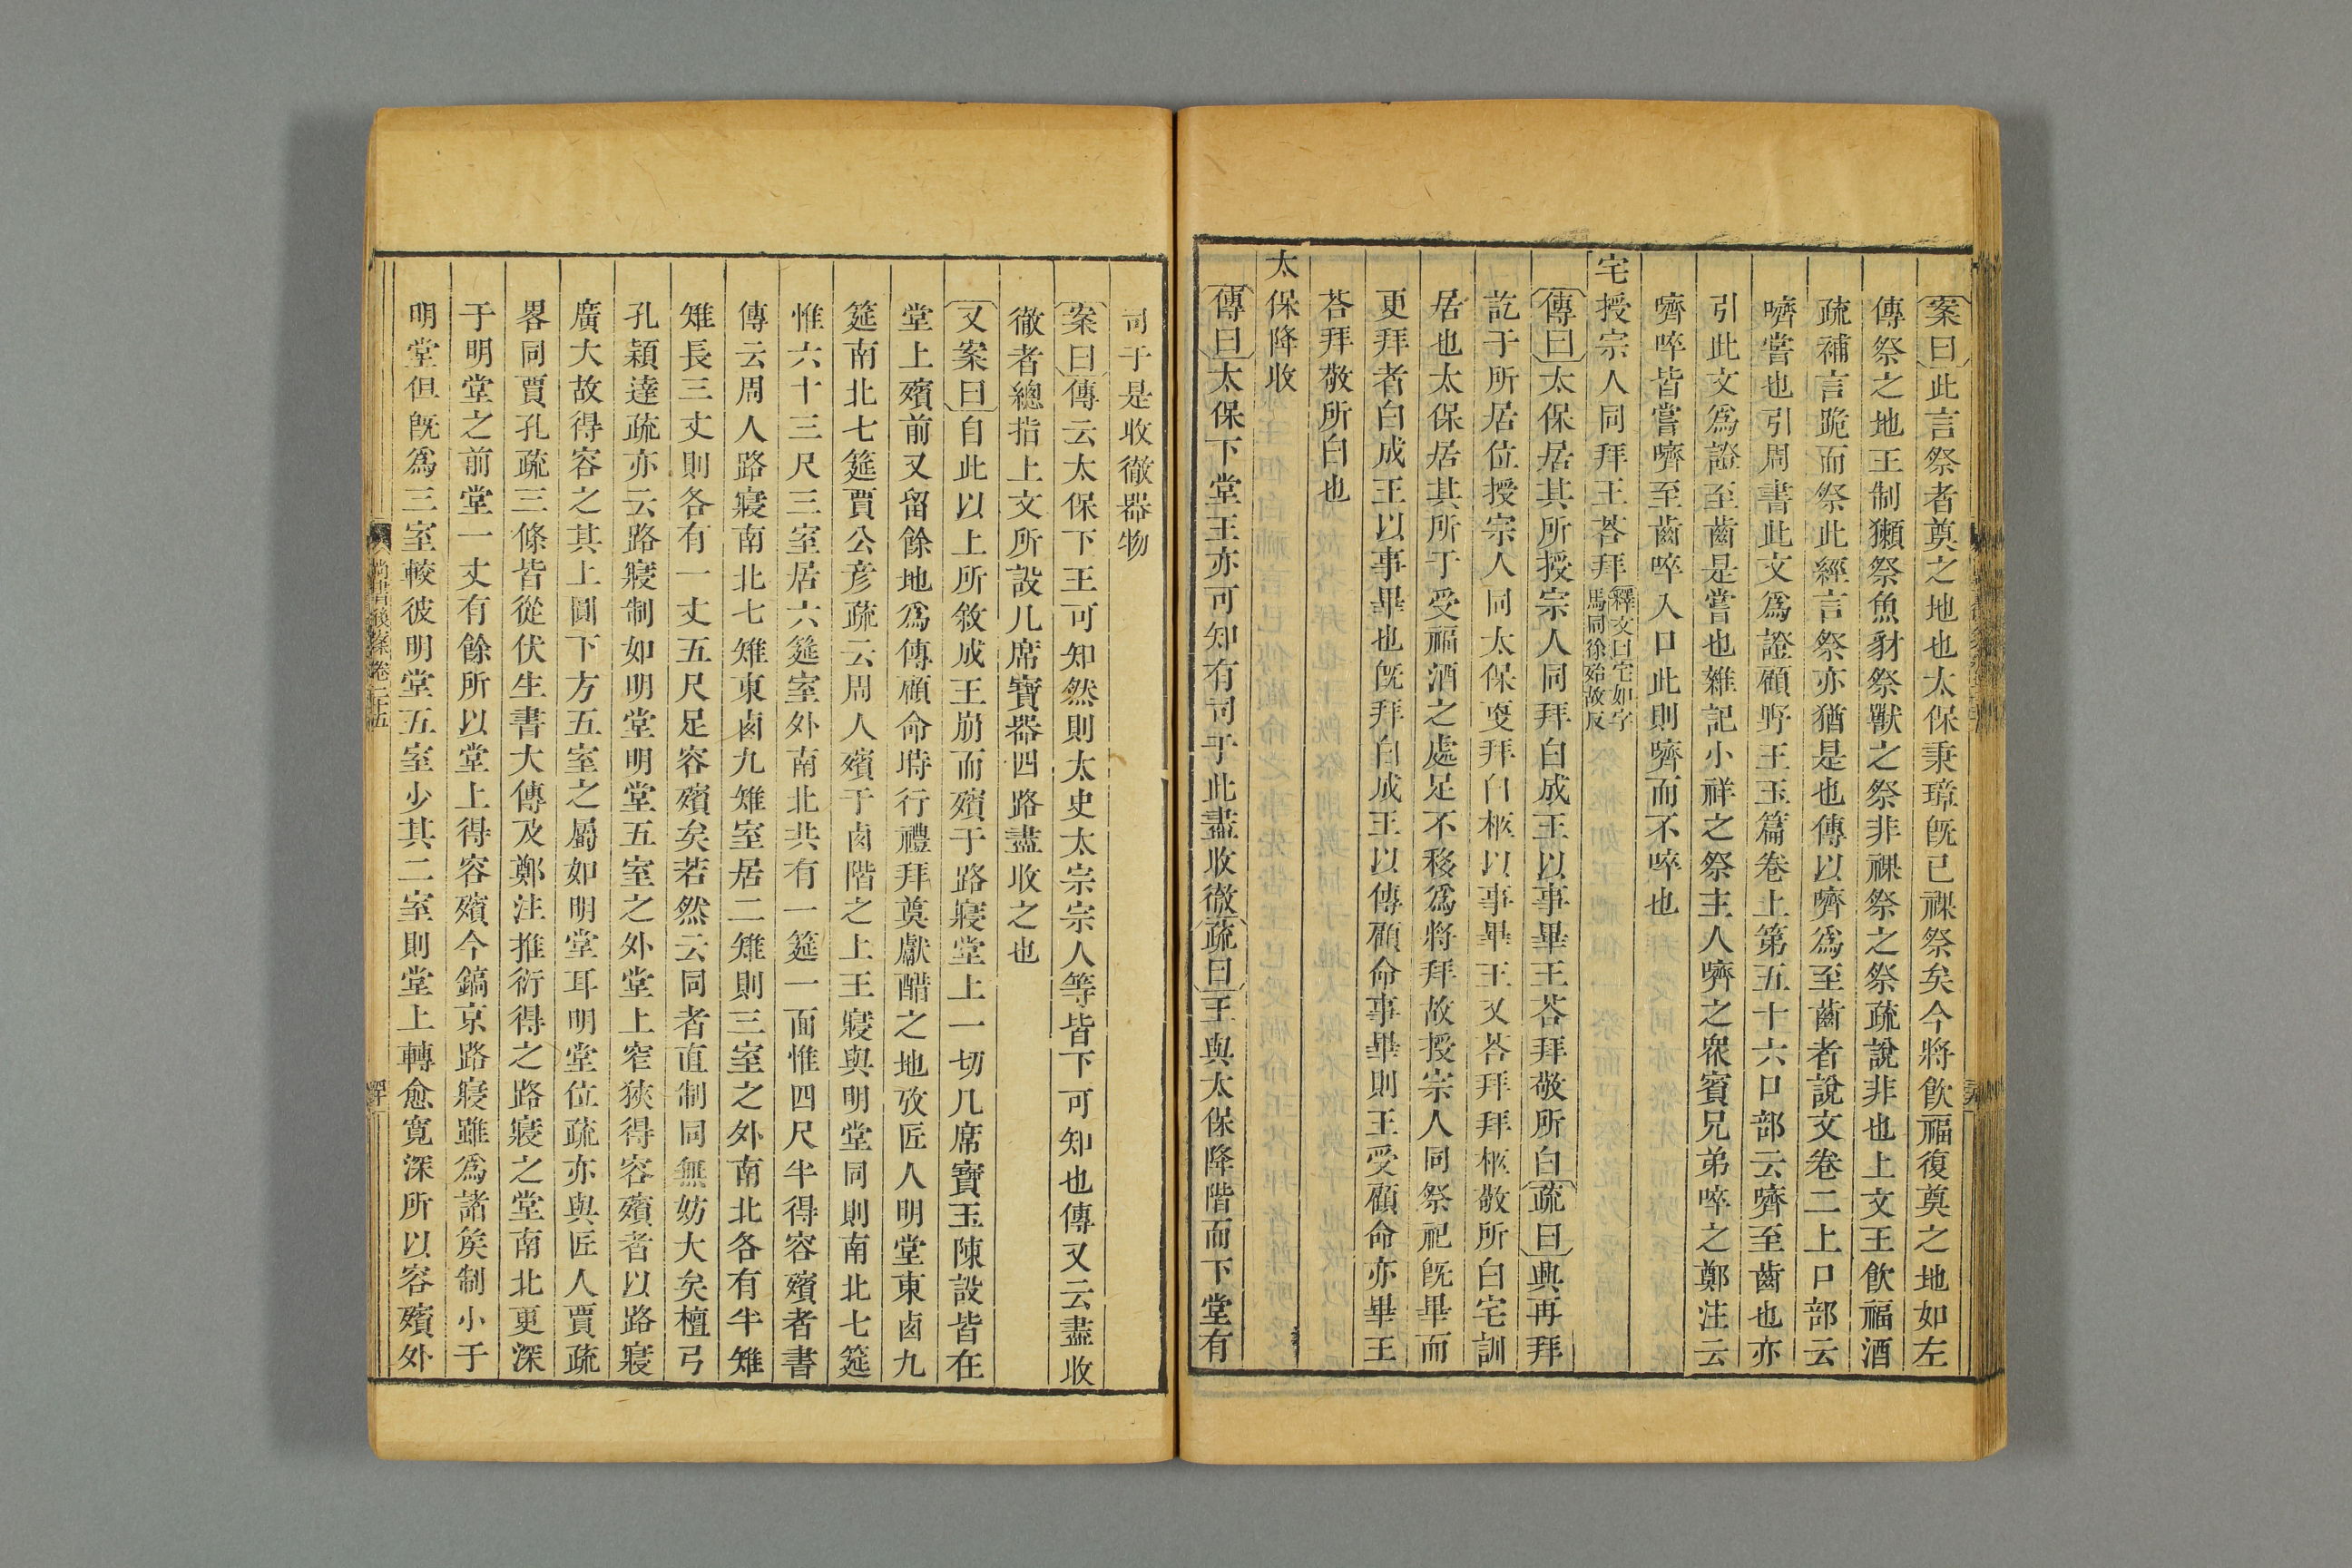 案曰此言祭者奠之地也太保秉璋旣已祼祭矣今將飮福復奠之地如左
傳祭之地王制獺祭魚豺祭獸之祭非祼祭之祭疏說非也上文王飮福酒
疏補言跪而祭此經言祭亦猶是也傳以嚌爲至齒者說文卷二上口部云
嚌嘗也引周書此文爲證顧野王玉篇卷上第五十六口部云嚌至齒也亦
引此文爲證至齒是嘗也雜記小祥之祭主人嚌之衆賓兄弟啐之鄭注云
嚌啐皆嘗嚌至齒啐入口此則嚌而不啐也
宅授宗人同拜王荅拜釋文曰宅如字馬同徐殆故反
傳曰太保居其所授宗人同拜白成王以事畢王荅拜敬所白疏曰典再拜
訖于所居位授宗人同太保更拜白柩以事畢王又荅拜拜柩敬所白宅訓
居也太保居其所于受福酒之處足不移爲將拜故授宗人同祭祀旣畢而
更拜者白成王以事畢也旣拜白成王以傳顧命事畢則王受顧命亦畢王
荅拜敬所白也
太保降收
傳曰太保下堂王亦可知有司于此盡收徹疏曰王與太保降階而下堂有
司于是收徹器物
案曰傳云太保下王可知然則太史太宗宗人等皆下可知也傳又云盡收
徹者總指上文所設几席寶器四路盡收之也
又案曰自此以上所敘成王崩而殯于路寢堂上一切几席寶玉陳設皆在
堂上殯前又留餘地爲傳顧命時行禮拜奠獻醋之地攷匠人明堂東㢴九
筵南北七筵賈公彥疏云周人殯于㢴階之上王寢與明堂同則南北七筵
惟六十三尺三室居六筵室外南北共有一筵一面惟四尺半得容殯者書
傳云周人路寢南北七雉東㢴九雉室居二雉則三室之外南北各有半雉
雉長三丈則各有一丈五尺足容殯矣若然云同者直制同無妨大矣檀弓
孔穎達疏亦云路寢制如明堂明堂五室之外堂上窄狹得容殯者以路寢
廣大故得容之其上圓下方五室之屬如明堂耳明堂位疏亦與匠人賈疏
畧同賈孔疏三條皆從伏生書大傳及鄭注推衍得之路寢之堂南北更深
于明堂之前堂一丈有餘所以堂上得容殯今鎬京路寢雖爲諸侯制小于
明堂但旣爲三室較彼明堂五室少其二室則堂上轉愈寬深所以容殯外
尚書後案卷二十五